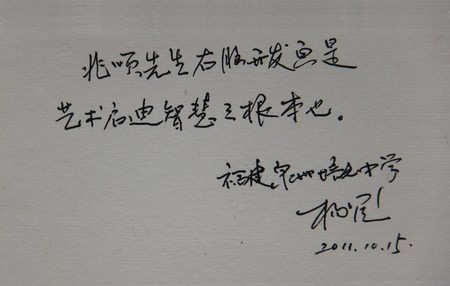 兆顷先生右脑开发真是
艺术启迪智慧之根本也。
福建泉州培元中学
2011.10.15.